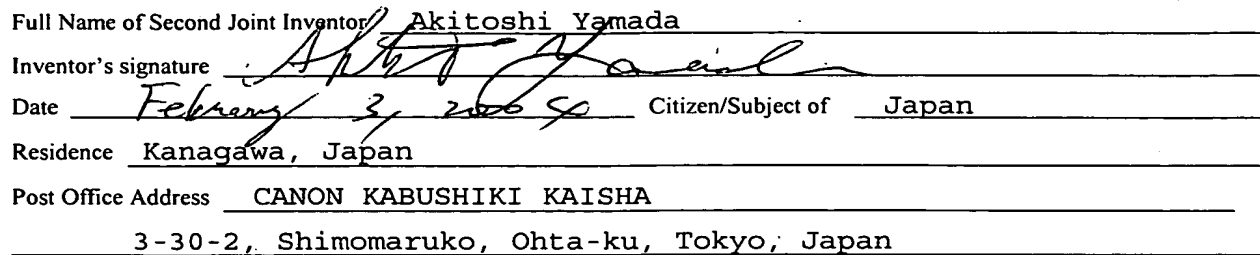 Full Name of Second Joint Inventor Akitoshi Yamada
Inventor's signature
Date February 3, 2004 Citizen/Subject of Japan
Residence Kanagawa, Japan
Post Office Address CANON KABUSHIKI KAISHA
3-30-2, Shimomaruko, Ohta-ku, Tokyo, Japan